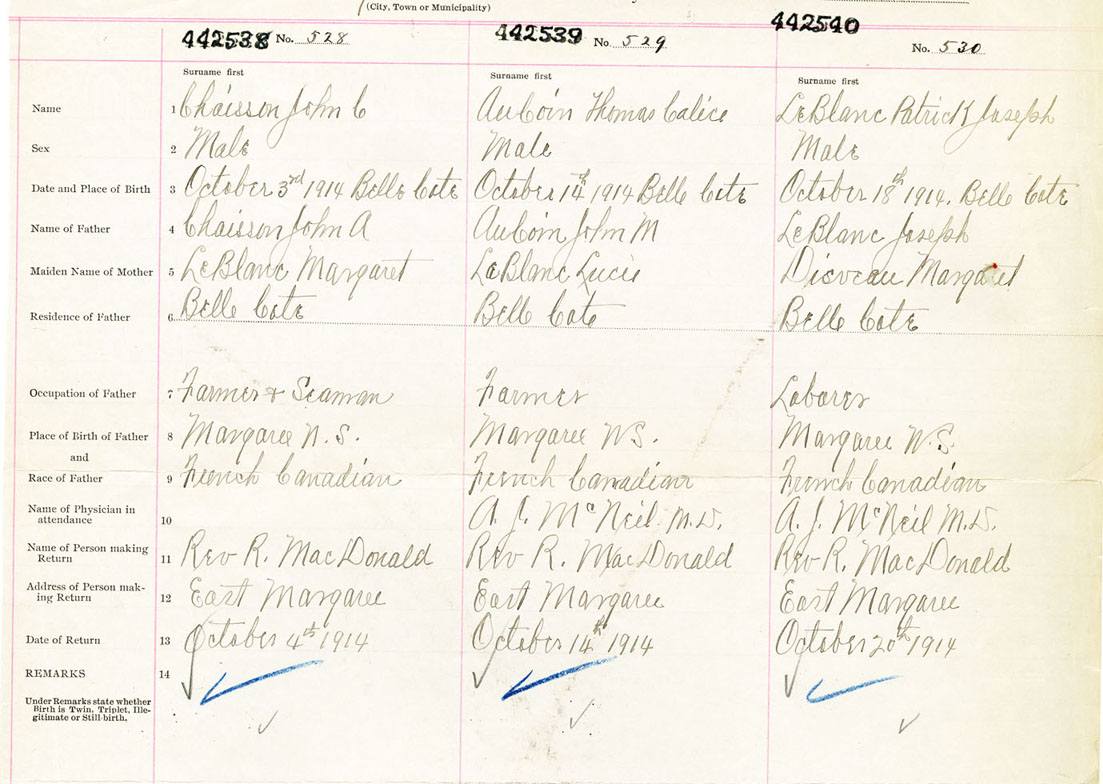 (City, Town or Municipality)
442538 No. 528 442539 No. 529 442540 No. 530
Surname first Surname first Surname first
Name 1 Chaisson John C AuCoin Thomas Calice LeBlanc Patrick Joseph
Sex 2 Male Male Male
Date and Place of Birth 3 October 3rd 1914 Belle Cote October 14th 1914 Belle Cote October 18th 1914. Belle Cote
Name of Father 4 Chaisson John A AuCoin John M LeBlanc Joseph
Maiden Name of Mother 5 LeBlanc Margaret LeBlanc Lucie Disveau Margaret
Residence of Father 6 Belle Cote Belle Cote Belle Cote
Occupation of Father 7 Farmer & Seaman Farmer Laborer
Place of Birth of Father 8 Margaree N.S. Margaree N.S. Margaree N.S.
and
Race of Father 9 French Canadian French Canadian French Canadian
Name of Physician in
attendance 10 A. J. McNeil M.D. A. J. McNeil M.D.
Name of Person making
Return 11 Rev R. MacDonald Rev R. MacDonald Rev R. MacDonald
Address of Person mak-
ing Return 12 East Margaree East Margaree East Margaree
Date of Return 13 October 4th 1914 October 14th 1914 October 20th 1914
REMARKS 14
Under Remarks state whether
Birth is Twin, Triplet, Ille-
gitimate or Still-birth.